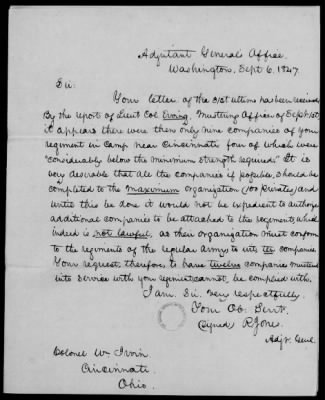 Adjutant General's Office,
Washington, Sept 6, 1847.
Sir.
Your letter of the 31st ultimo has been received
By the report of Lieut Col Erving, Mustering Officer of Sept 1st
it appears there were then only nine companies of your
regiment in Camp near Cincinnati four of which were
"considerably below the minimum strength required." It is
very desirable that all the companies if possible, should be
completed to the maximum organization (100 Privates) and
until this be done it would not be expedient to authorize
additional companies to be attached to the regiments, which
indeed is not lawful, as their organization must conform
to the regiments of the regular army to wit: ten companies
Your request, therefore, to have twelve companies mustered
into service with your regiment, cannot be complied with.
I am Sir, Very respectfully.
Your Ob: Servt.
Signed R Jones.
Adjt. Genl.
Colonel Wm Irvin
Cincinnati
Ohio.